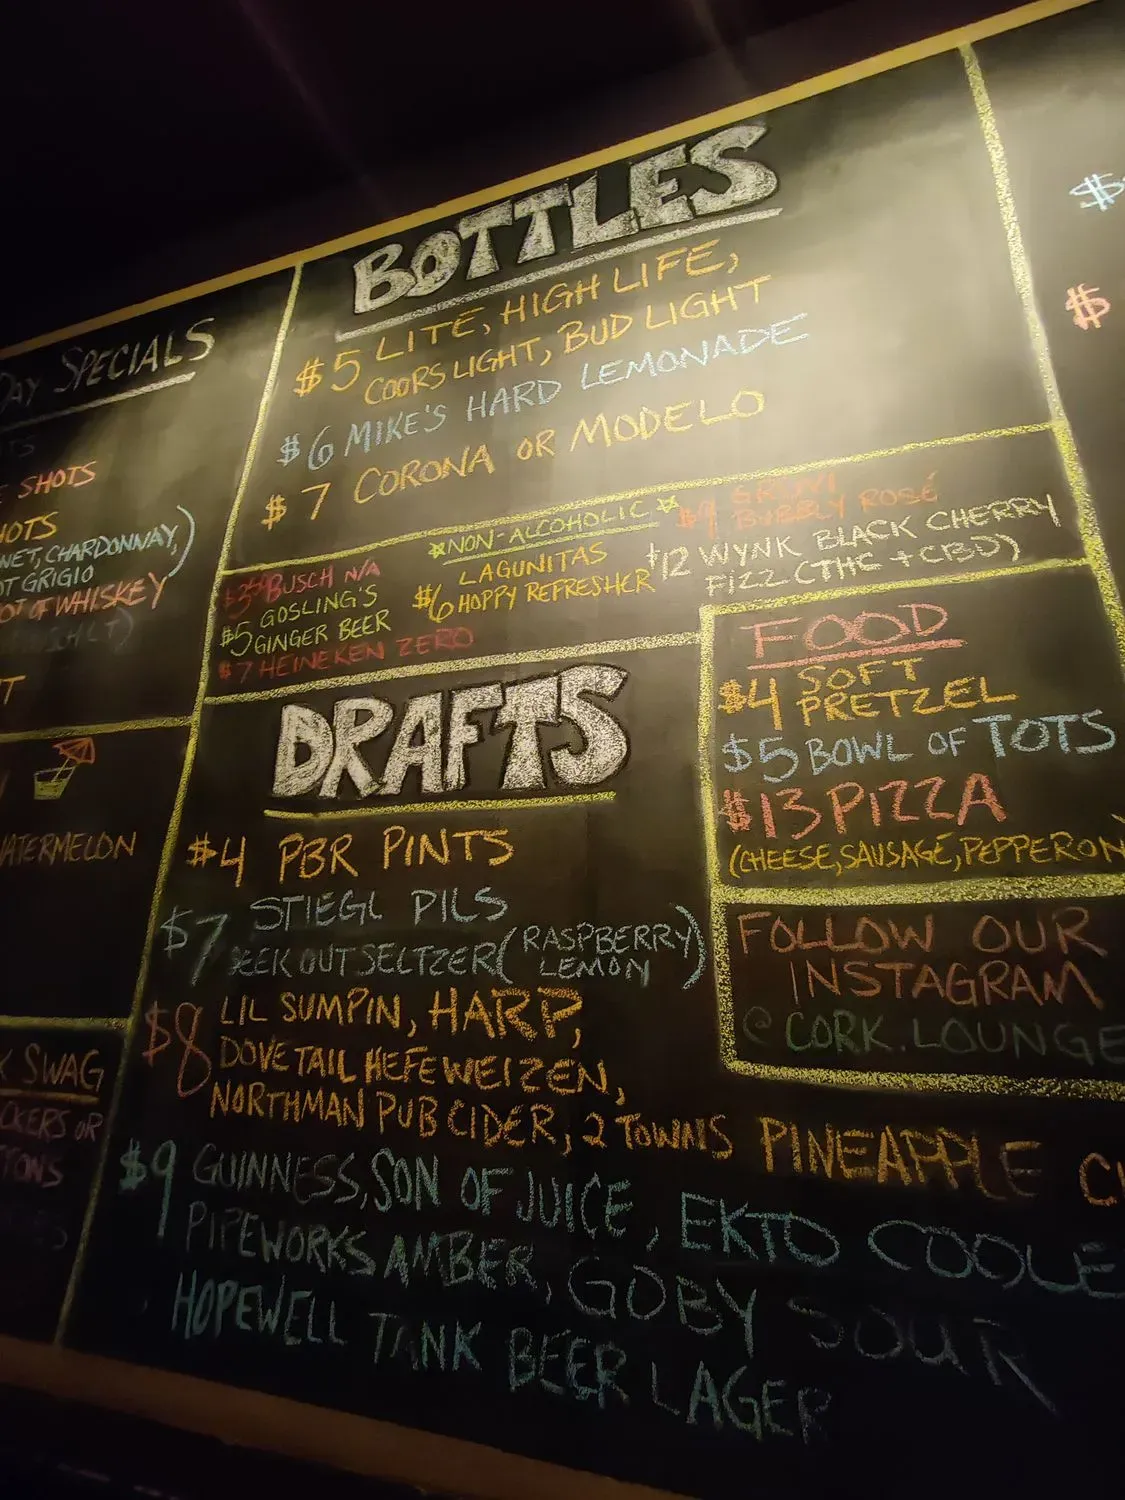 DAY SPECIALS
SHOTS
SHOTS
NET, CHARDONNAY,)
OT GRIGIO
OT OF WHISKEY
WATERMELON
SWAG
CKERS OR
TONS
BOTTLES
$5 LITE, HIGH LIFE,
COORS LIGHT, BUD LIGHT
$6 MIKE'S HARD LEMONADE
$7 CORONA OR MODELO
*NON-ALCOHOLIC*
BUSCH N/A
$5 GOSLING'S
GINGER BEER
$7 HEINEKEN ZERO
LAGUNITAS
$6 HOPPY REFRESHER
$9 GRUVI
BUBBLY ROSÉ
$12 WYNK BLACK CHERRY
FIZZ (THC + CBD)
DRAFTS
$4 PBR PINTS
STIEGL PILS
$7 SEEK OUT SELTZER (RASPBERRY
LEMON)
$8 LIL SUMPIN, HARP,
DOVETAIL HEFEWEIZEN,
NORTHMAN PUB CIDER, 2 TOWNS PINEAPPLE CI
$9 GUINNESS, SON OF JUICE, EKTO COOLE
PIPEWORKS AMBER, GOBY SOUR
HOPEWELL TANK BEER LAGER
FOOD
$4 SOFT
PRETZEL
$5 BOWL OF TOTS
$13 PIZZA
(CHEESE, SAUSAGE, PEPPERON
FOLLOW OUR
INSTAGRAM
@CORK.LOUNGE
$
$